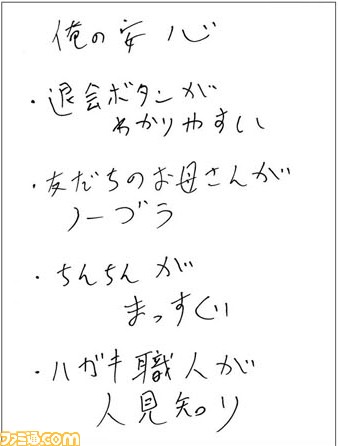 俺の安心
・退会ボタンが
わかりやすい
・友だちのお母さんが
ノーブラ
・ちんちんが
まっすぐい
・ハガキ職人が
人見知り
ファミ通.com